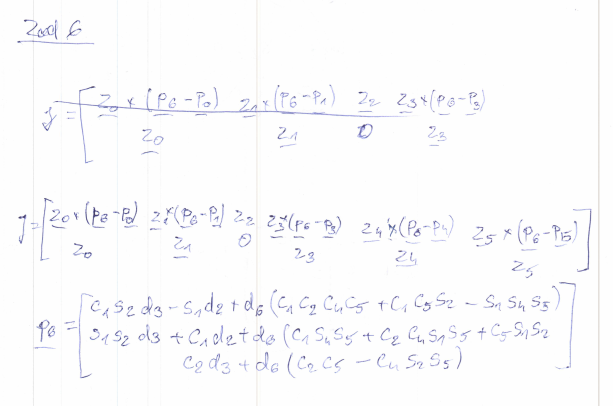 Zad 6
J = [ z0 × (p6 - p0) z1 × (p6 - p1) z2 z3 × (p6 - p3)
z0 z1 0 z3
J = [ z0 × (p6 - p0) z1 × (p6 - p1) z2 z3 × (p6 - p3) z4 × (p6 - p4) z5 × (p6 - p5) ]
z0 z1 0 z3 z4 z5
c1 s2 d3 - s1 d2 + d6 (c1 c2 c4 c5 + c1 c5 s2 - s1 s4 s5)
p6 = [ s1 s2 d3 + c1 d2 + d6 (c1 s4 s5 + c2 c4 s1 s5 + c5 s1 s2 ]
c2 d3 + d6 (c2 c5 - c4 s2 s5)